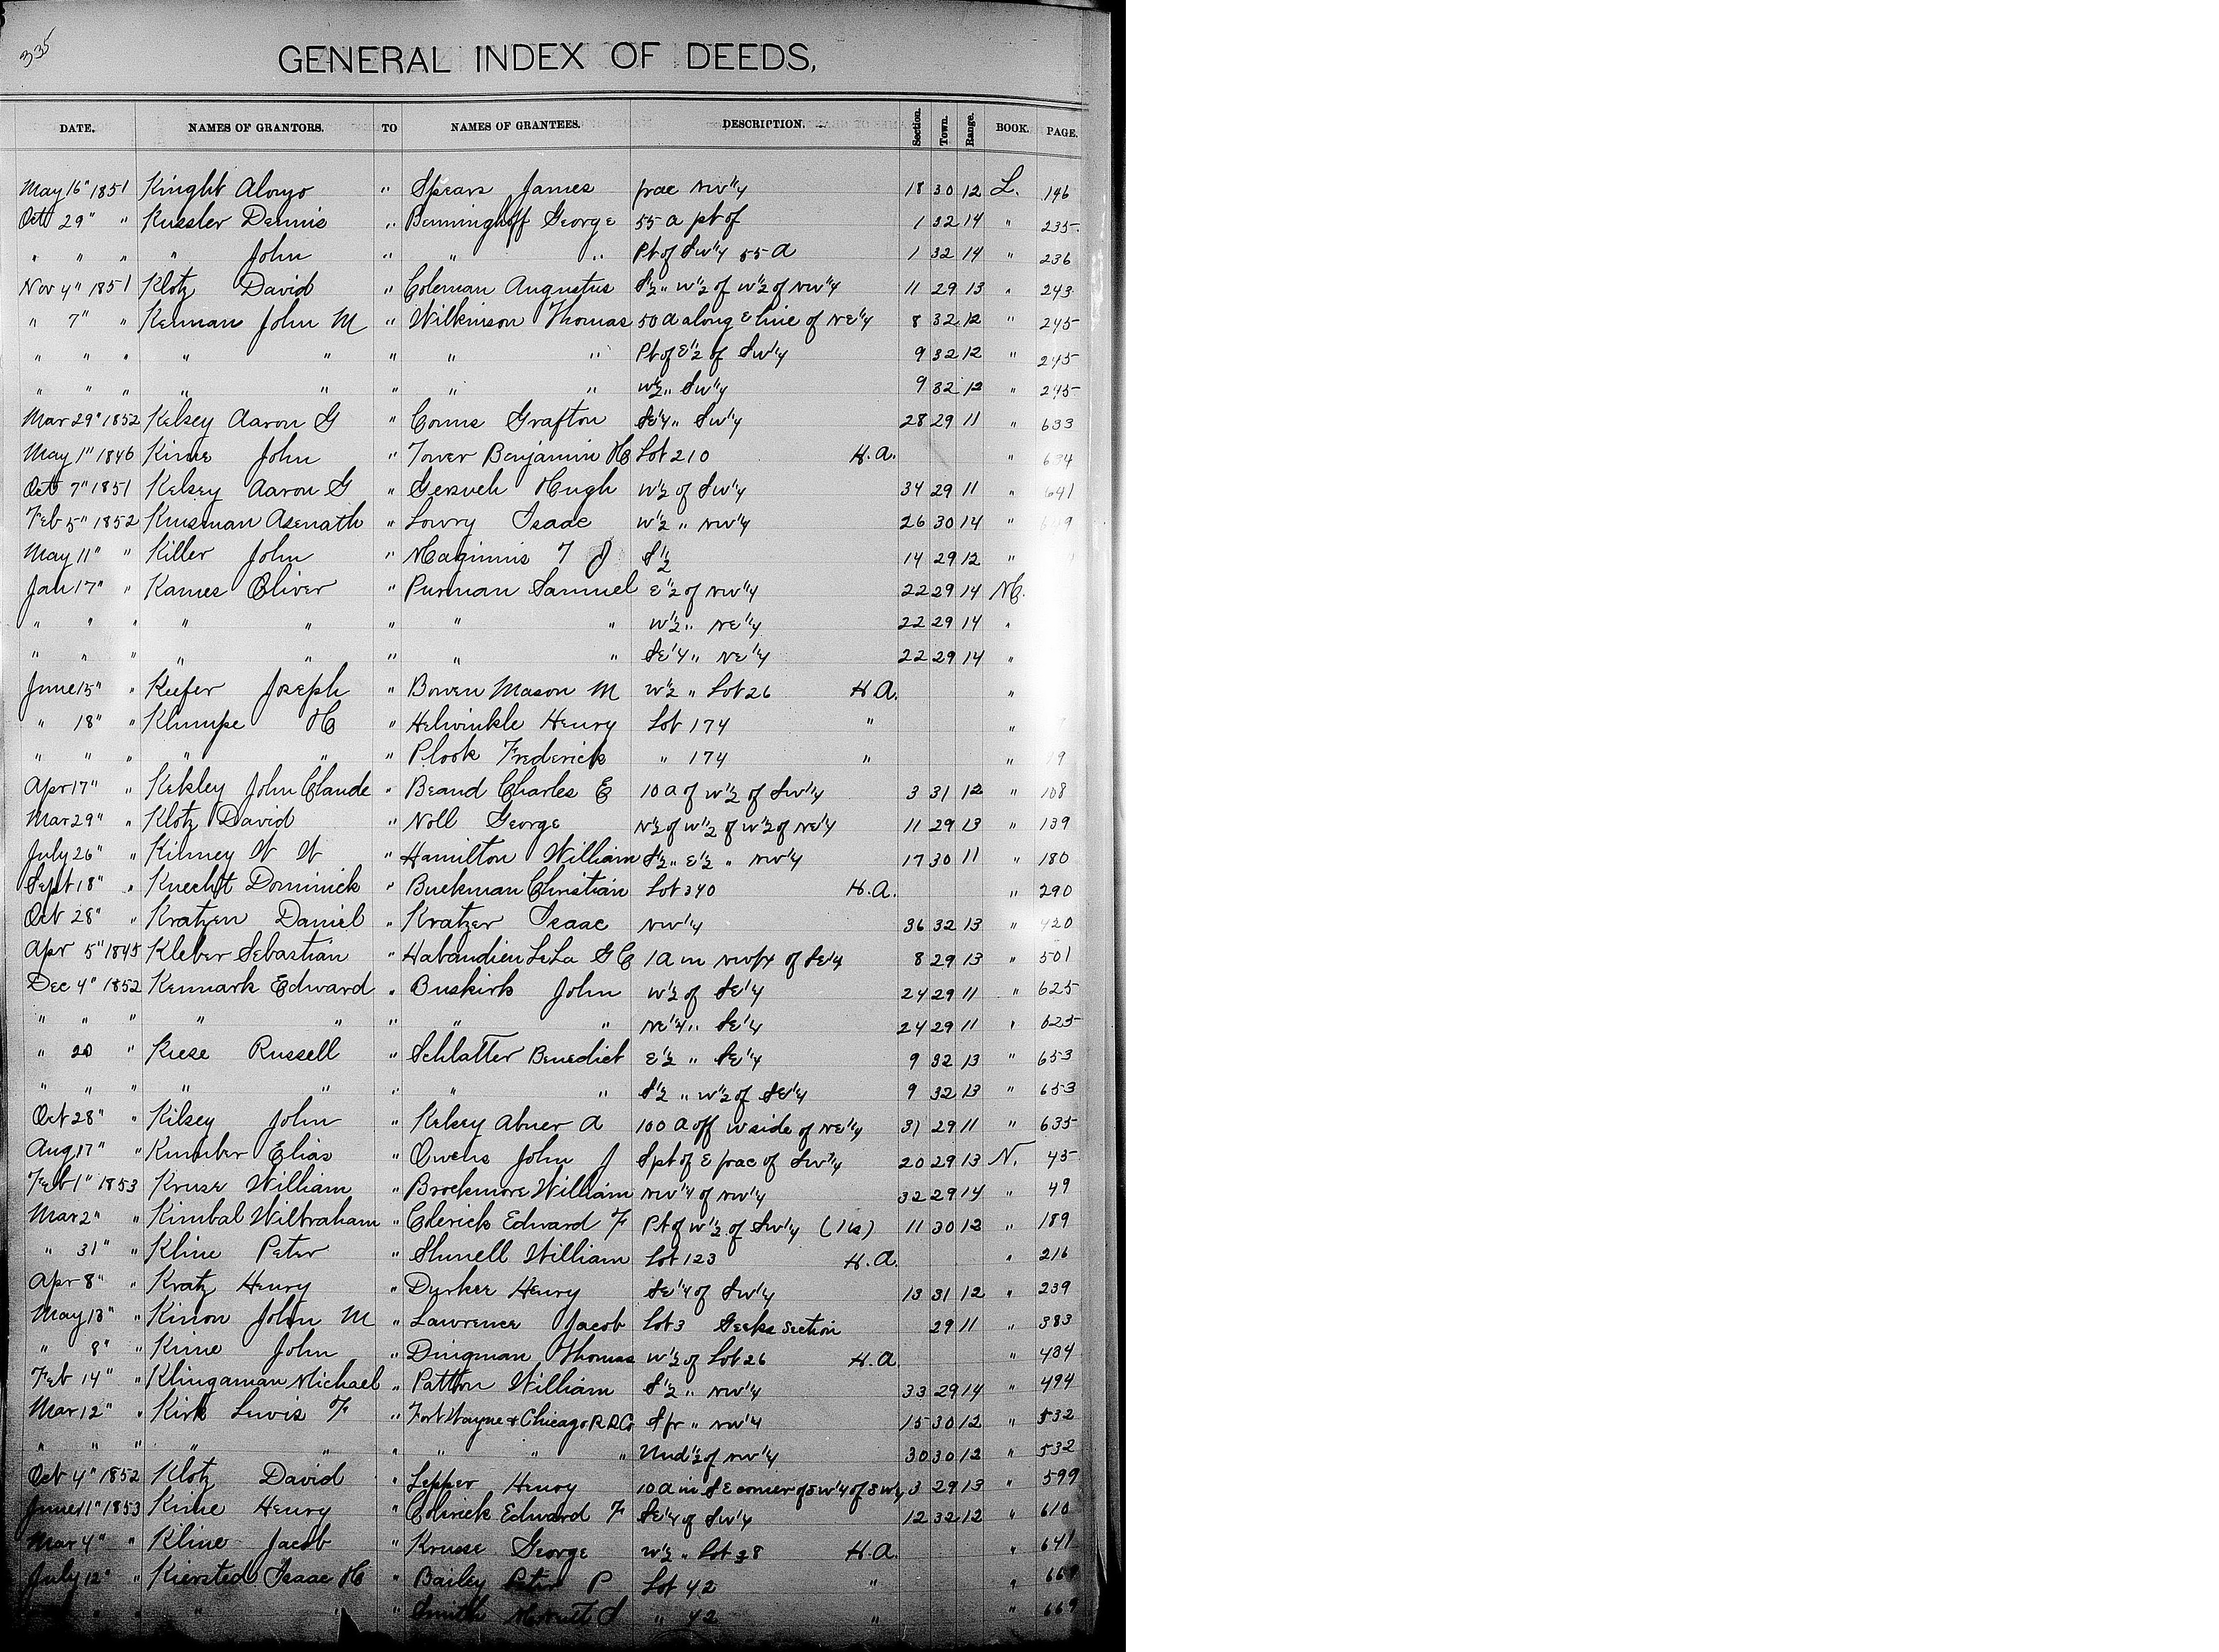 335
GENERAL INDEX OF DEEDS,
DATE. NAMES OF GRANTORS. TO NAMES OF GRANTEES. DESCRIPTION. Section. Town. Range. BOOK. PAGE.
May 16" 1851 Knight Alonzo " Spears James frac NW"4 18 30 12 L. 146
Oct 29" " Kussler Dennis " Benninghoff George 55 a pt of 1 32 14 " 235
" " " " John " " " Pt of SW"4 55 a 1 32 14 " 236
Nov 4" 1851 Klotz David " Coleman Augustus S½ " W½ of W½ of NW"4 11 29 13 " 243
" 7" " Kennan John M " Wilkinson Thomas 50 a along E line of NE"4 8 32 12 " 245
" " " " " " " " Pt of E½ of SW¼ 9 32 12 " 245
" " " " " " " " W½ " SW"4 9 32 12 " 245
Mar 29" 1852 Kelsey Aaron G " Comes Grafton SE¼ " SW¼ 28 29 11 " 633
May 1" 1846 Kime John " Tower Benjamin H Lot 210 H.A. " 634
Oct 7" 1851 Kelsey Aaron G " Hugh W½ of SW¼ 34 29 11 " 641
Feb 5" 1852 Kinsman Asenath " Lowry Isaac W½ " NW¼ 26 30 14 "
May 11" " Killer John " Maginnis T J S½ 14 29 12 "
Jan 17" " Kames Oliver " Purman Samuel E½ of NW"4 22 29 14 M.
" " " " " " " " W½ " NE"4 22 29 14 "
" " " " " " " " SE¼ " NE¼ 22 29 14 "
June 15" " Keefer Joseph " Bowen Mason M W½ " Lot 26 H.A. "
" 18" " Klumpe H " Helwinkle Henry Lot 174 " "
" " " " " " Plook Frederick " 174 " " 19
Apr 17" " Kekley John Claude " Beaud Charles E 10 a of W½ of SW¼ 3 31 12 " 108
Mar 29" " Klotz David " Noll George N½ of W½ of W½ of NE¼ 11 29 13 " 139
July 26" " Kinney W W " Hamilton William S½ " E½ " NW¼ 17 30 11 " 180
Sept 18" " Knecht Dominick " Buckman Christian Lot 340 H.A. " 290
Oct 28" " Kratzen Daniel " Kratzer Isaac NW¼ 36 32 13 " 420
Apr 5" 1845 Kleber Sebastian " 1 a in of SE¼ 8 29 13 " 501
Dec 4" 1852 Kennark Edward " Buskirk John W½ of SE¼ 24 29 11 " 625
" " " " " " " " NE¼ " SE¼ 24 29 11 " 625
" 20 " Reese Russell " Schlatter Benedict E½ " SE¼ 9 32 13 " 653
" " " " " " " " S½ " W½ of SE¼ 9 32 13 " 653
Oct 28" " Kilsey John " Kelsey Abner A 100 a off W side of NE"4 31 29 11 " 635
Aug 17" " Kimber Elias " Owens John J S pt of E frac of SW¼ 20 29 13 N. 45
Feb 1" 1853 Kruse William " Brockmore William NW¼ of NW¼ 32 29 14 " 49
Mar 2" " Kimbal Wilbraham " Colerick Edward F Pt of W½ of SW¼ 11 30 12 " 189
" 31" " Kline Peter " Shnell William Lot 123 H.A. " 216
Apr 8" " Kratz Henry " Durker Henry SE¼ of SW¼ 13 31 12 " 239
May 13" " Kinon John M " Lawrence Jacob Lot 3 Geeks Section 29 11 " 383
" 8" " Kime John " Dingman Thomas W½ of Lot 26 H.A. " 484
Feb 14" " Klingaman Michael " Patton William S½ " NW¼ 33 29 14 " 494
Mar 12" " Kirk Lewis F " Fort Wayne & Chicago R R Co S fr " NW¼ 15 30 12 " 532
" " " " " " " " " Und ½ of NW¼ 30 30 12 " 532
Oct 4" 1852 Klotz David " Lepper Henry 10 a in SE corner of SW¼ of SW¼ 3 29 13 " 599
June 11" 1853 Kime Henry " Colerick Edward F SE¼ of SW¼ 12 32 12 " 610
Mar 4" " Kline Jacob " Kruse George W½ " Lot 38 H.A. " 641
July 12" " Kiersted Isaac H " Bailey Peter P Lot 42 " " 669
" " " " " Smith S " 42 " " 669